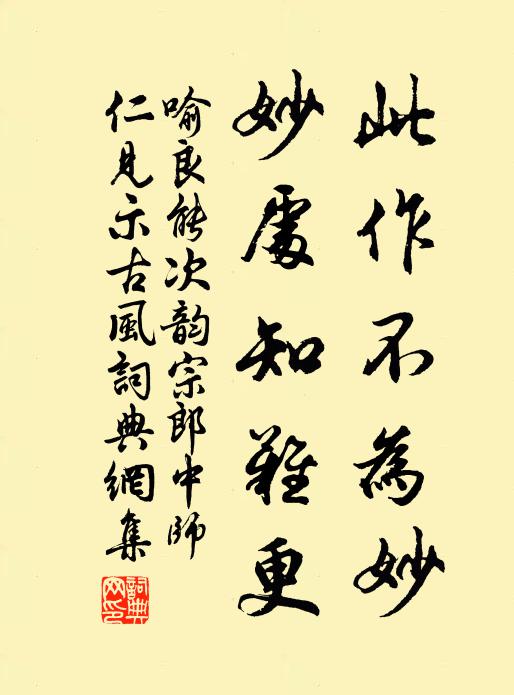 此作不為妙
妙處知難更
喻良能次韵宗郎中師
仁見示古風詞典網集
詞典
网印